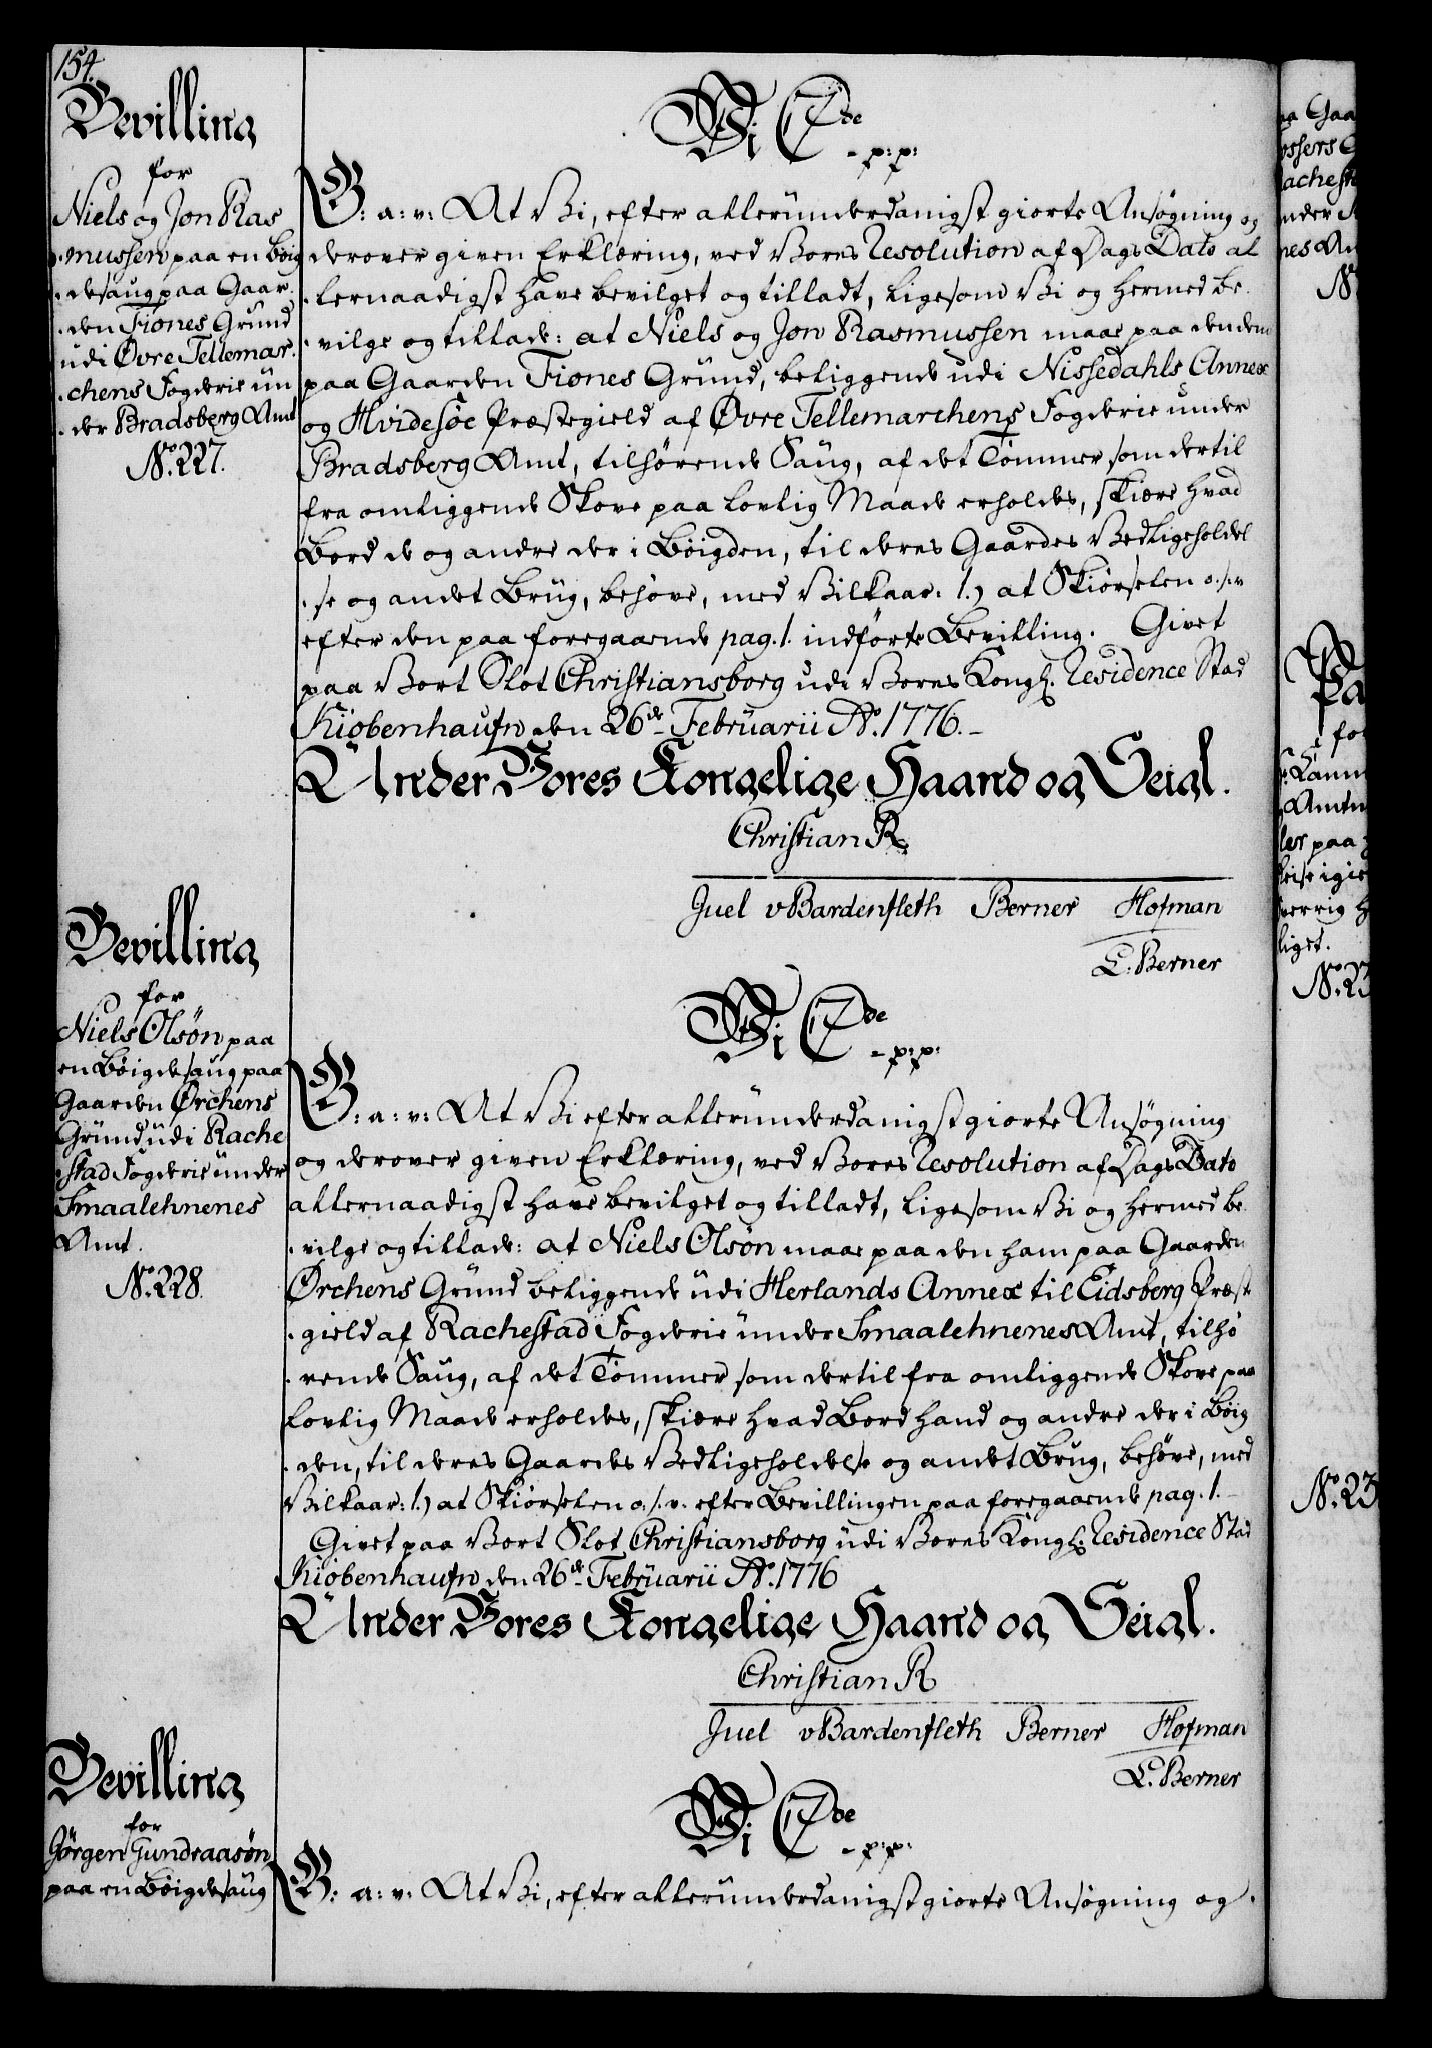 154.
Bevilling
for
Niels og Jon Ras
mussen paa en Böig
desaug paa Gaar
den Fiones Grund
udi Øvre Tellemar
chens Fogderie un
der Bradsberg Amt
No. 227.
Wi C 7de
- p: p:
G: a: v: At Vi, efter allerunderdanigst giorte Ansøgning og
derover given Erklæring, ved Vores Resolution af Dags Dato al
lernaadigst have bevilget og tilladt, ligesom Vi og hermed be
vilge og tillade: at Niels og Jon Rasmussen maae paa den dem
paa Gaarden Fiones Grund, beliggende udi Nissedahls Annex
og Hvidesøe Præstegield af Øvre Tellemarchens Fogderie under
Bradsberg Amt, tilhørende Saug, af det Tömmer som dertil
fra omliggende Skove paa lovlig Maade erholdes, skiære hvad
Bord de og andre der i Böigden, til deres Gaardes Vedligeholdel
se og andet Brug, behøve, med Vilkaar: 1.) at Skiørselen o: s: v:
efter den paa foregaaende pag. 1. indførte Bevilling. Givet
paa Vort Slot Christiansborg udi Vores Kongl. Residence Stad
Kiøbenhaufn den 26de Februarii Ao. 1776.-
Under Vores Kongelige Haand og Seigl.
Christian R.
Juel vBardenfleth Berner Hofman
L. Berner
Bevilling
for
Niels Olsøn paa
en Böigdesaug paa
Gaarden Ørchens
Grund udi Rache
stad Fogderie under
Smaalehnenes
Amt.
No. 228.
Wi C 7de
- p: p:
G: a: v: At Vi efter allerunderdanigst giorte Ansøgning
og derover given Erklæring, ved Vores Resolution af Dags Dato
allernaadigst have bevilget og tilladt, ligesom Vi og hermed be
vilge og tillade: at Niels Olsøn maae paa den ham paa Gaarden
Ørchens Grund beliggende udi Herlands Annex til Eidsberg Præste
gield af Rachestad Fogderie under Smaalehnenes Amt, tilhø
rende Saug, af det Tömmer som dertil fra omliggende Skove paa
lovlig Maade erholdes, skiære hvad Bord hand og andre der i Böig
den, til deres Gaardes Vedligeholdelse og andet Brug, behøve, med
Vilkaar: 1.) at Skiørselen o: s: v: efter Bevillingen paa foregaaende pag. 1.-
Givet paa Vort Slot Christiansborg udi Vores Kongl. Residence Stad
Kiøbenhaufn den 26de Februarii Ao. 1776
Under Vores Kongelige Haand og Seigl.
Christian R
Juel vBardenfleth Berner Hofman
L. Berner
Bevilling
for
Jörgen Gundraasøn
paa en Böigdesaug
Wi C 7de
- p: p:
G: a: v: At Vi, efter allerunderdanigst giorte Ansøgning og